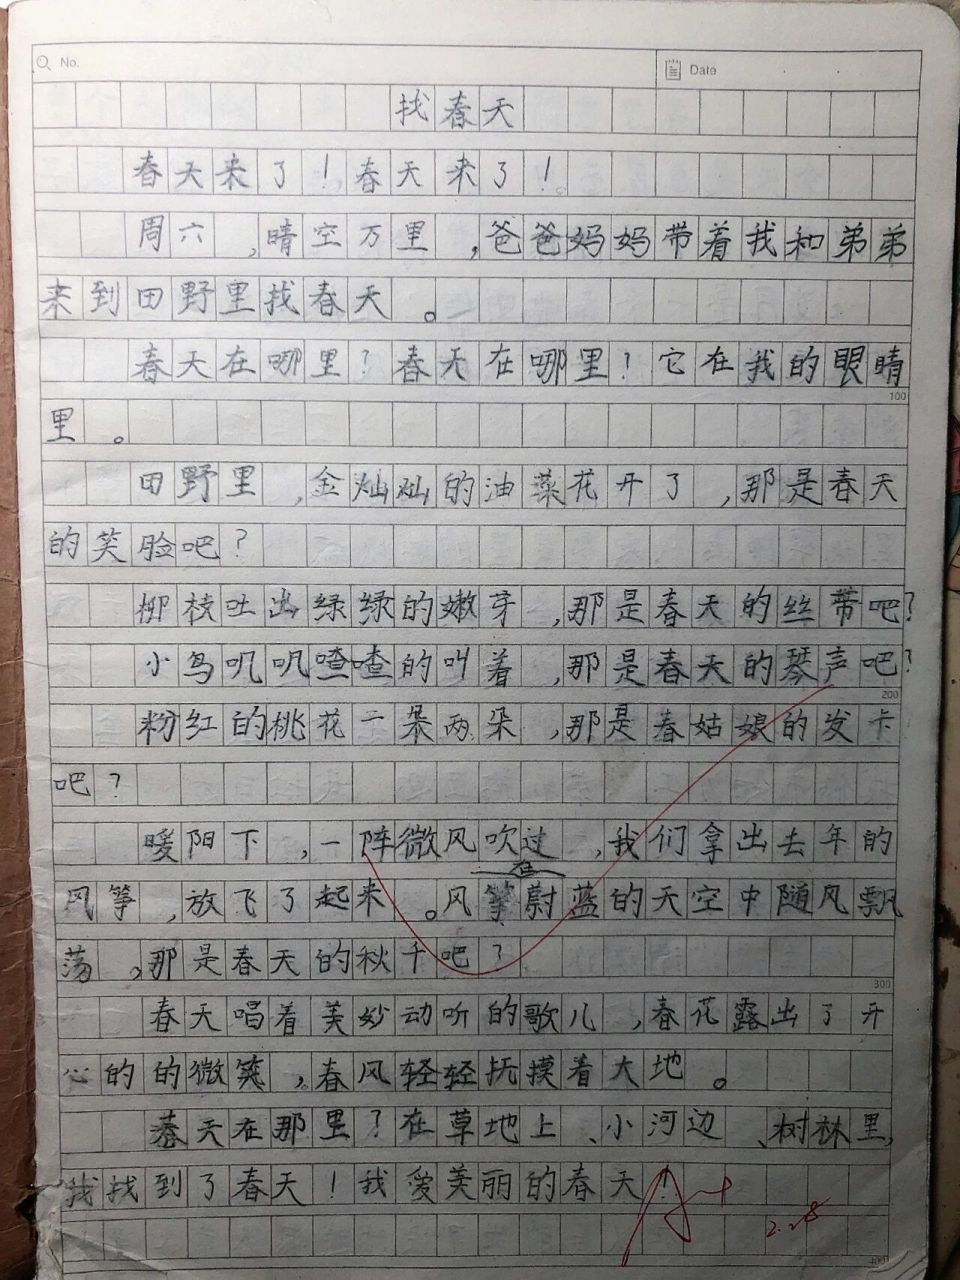 No.
Date
找春天
春天来了！春天来了！
周六，晴空万里，爸爸妈妈带着我和弟弟
来到田野里找春天。
春天在哪里？春天在哪里？它在我的眼睛
100
里。
田野里，金灿灿的油菜花开了，那是春天
的笑脸吧？
柳枝吐出绿绿的嫩芽，那是春天的丝带吧？
小鸟叽叽喳喳的叫着，那是春天的琴声吧？
200
粉红的桃花一朵两朵，那是春姑娘的发卡
吧？
暖阳下，一阵微风吹过，我们拿出去年的
风筝，放飞了起来。风筝在蔚蓝的天空中随风飘
荡。那是春天的秋千吧？
300
春天唱着美妙动听的歌儿，春花露出了开
心的的微笑，春风轻轻抚摸着大地。
春天在那里？在草地上、小河边、树林里，
我找到了春天！我爱美丽的春天！
A+
2.28
400